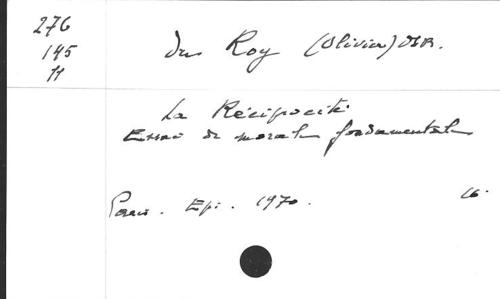 276
145
11
du Roy (Olivier) OSB.
La Réciprocité.
Essai de morale fondamentale
Paris. Epi. 1970. 16.